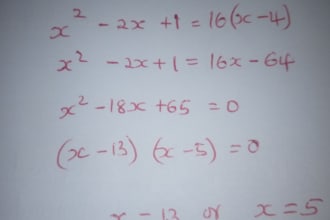 x² - 2x + 1 = 16(x - 4)
x² - 2x + 1 = 16x - 64
x² - 18x + 65 = 0
(x - 13) (x - 5) = 0
x = 13 or x = 5